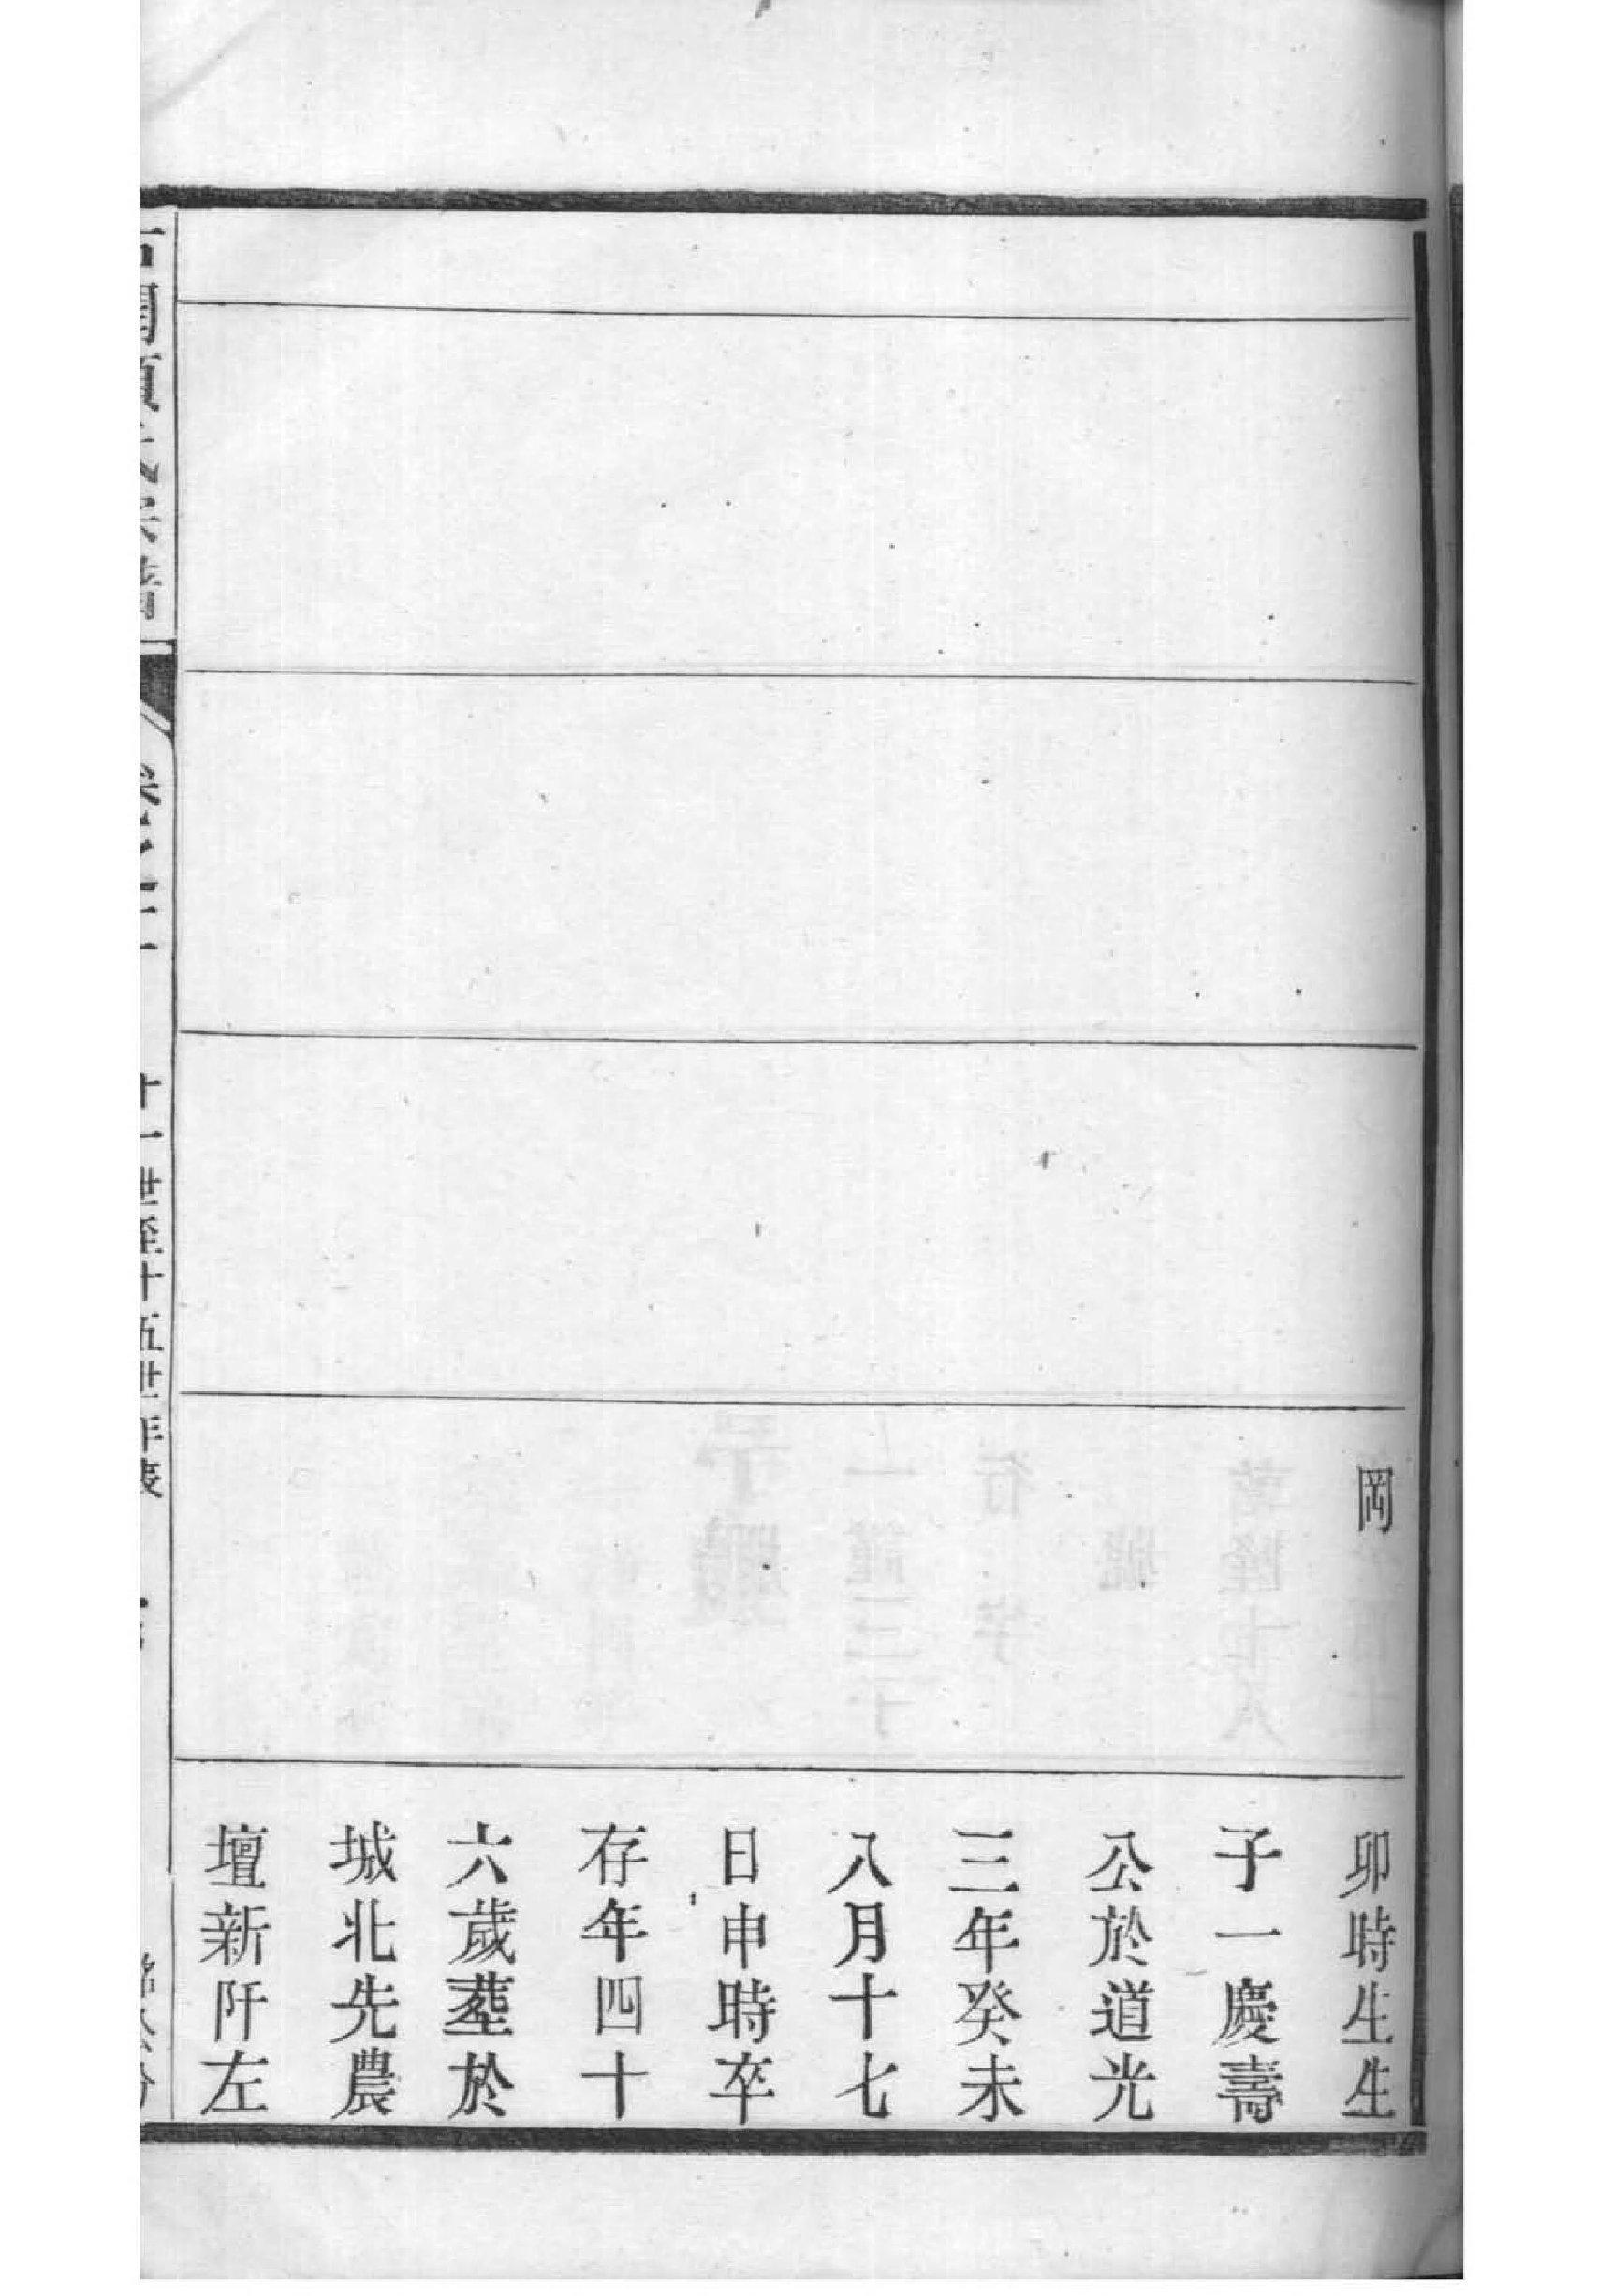 岡
卯時生生
子一慶壽
公於道光
三年癸未
八月十七
日申時卒
存年四十
六歲葬於
城北先農
壇新阡左
十一世至十五世年表